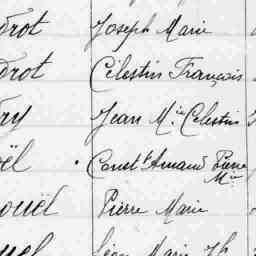 drot Joseph Marie
drot Célestin François
ry Jean Mie Célestin
ël Const t Armand Pierre
Mie
ouël Pierre Marie
uel Jean Marie